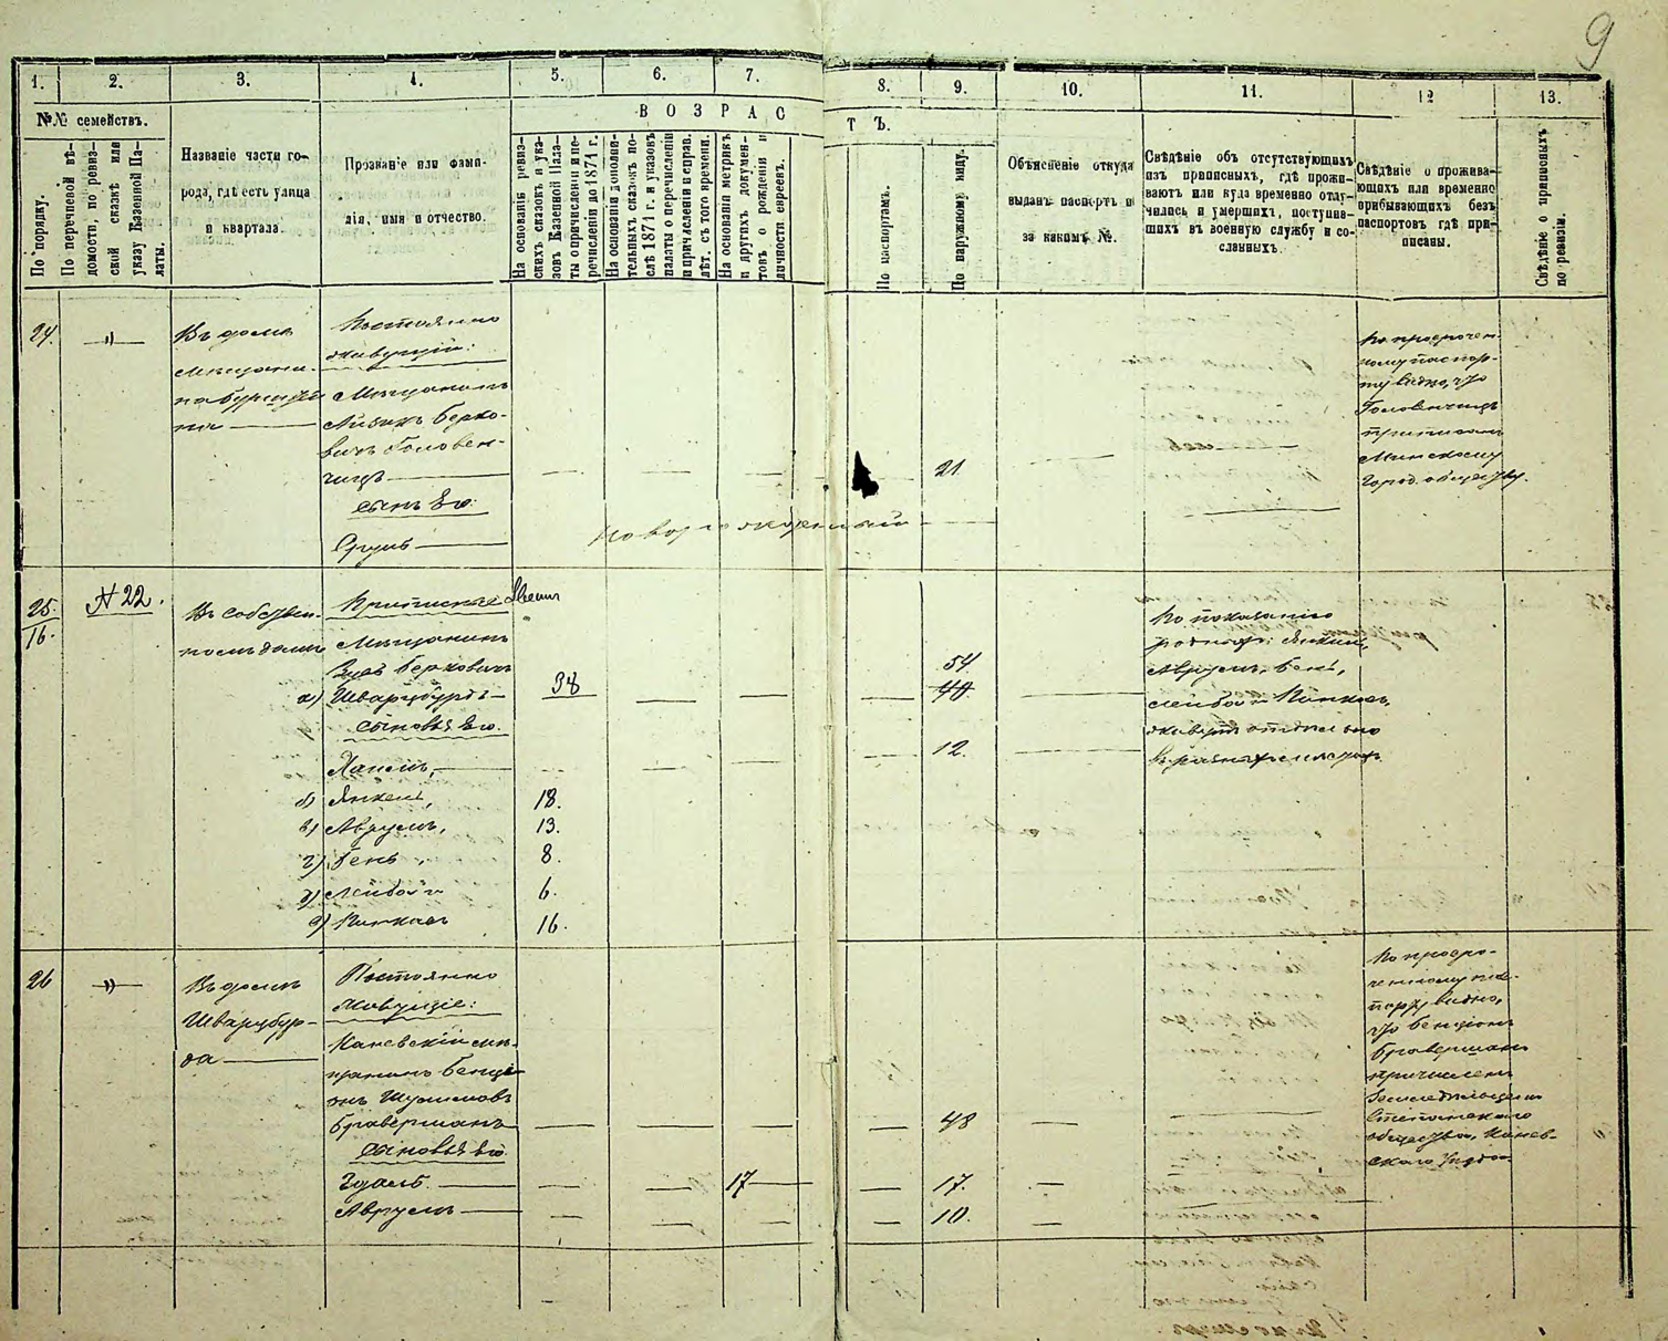 9
1. 2. 3. 4. 5. 6. 7. 8. 9. 10. 11. 12 13.
№№ семействъ.
По порядку.
По перечневой вѣ-
домости, по ревиз-
ской сказкѣ или
указу Казенной Па-
латы.
Названіе части го-
рода, гдѣ есть улица
и квартала.
Прозваніе или фами-
лія, имя и отчество.
ВОЗРАС
ТЪ.
На основаніи ревиз-
скихъ сказокъ и ука-
зовъ Казенной Пала-
ты о причисленіи и пе-
речисленіи до 1874 г.
На основаніи дополни-
тельныхъ сказокъ по-
слѣ 1871 г. и указовъ
палаты о перечисленіи
и причисленіи и справ.
лѣт. съ того времени.
На основаніи метрикъ
и другихъ докумен-
товъ о рожденіи и
личности евреевъ.
По паспортамъ.
По наружному виду.
Объясненіе откуда
выданъ паспортъ и
за какимъ №.
Свѣдѣніе объ отсутствующихъ
изъ приписныхъ, гдѣ прожи-
ваютъ или куда временно отлу-
чились и умершихъ, поступив-
шихъ въ военную службу и со-
сланныхъ.
Свѣдѣніе о прожива-
ющихъ или временно
прибывающихъ безъ
паспортовъ гдѣ при-
писаны.
Свѣдѣніе о приписныхъ
по ревизіи.
24.
Въ домѣ
мѣщани-
на
Постоянно
живущій:
Мѣщанинъ
Айзикъ Берко-
вичъ Головен-
чицъ
21
сынъ его
Сруль
Новорожденный
По просрочен-
ному паспор-
ту видно, что
Головенчицъ
приписанъ
Минскому
город. обществу.
25.
16.
№ 22.
Въ собствен-
номъ домѣ
Приписные
Мѣщанинъ
Берковичъ
а) Шварцбурдъ
38
54
40
сыновья его
12.
б) Янкель, 18.
в) Аврумъ, 13.
г) Бень, 8.
д) Лейба и 6.
е) Пинхасъ 16.
По показанію
Янкель,
Аврумъ, Бень,
Лейба и Пинхасъ,
живутъ отдельно
въ разныхъ мѣстахъ
26
Въ домѣ
Шварцбур-
да
Постоянно
живущіе:
Каневскій мѣ-
щанинъ Бенці-
онъ Шулимовъ
Браверманъ
48
сыновья его
17
17.
Аврумъ
10.
По просро-
ченному пас-
порту видно,
что Бенціонъ
Браверманъ
причисленъ
Степанскаго
общества, Канев-
скаго уѣзда